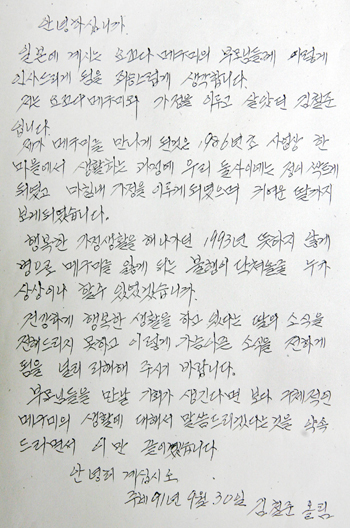 안녕하십니까.
일본에 계시는 요꼬다 메구미의 부모님들께 이렇게
인사드리게 됨을 죄한럽게 생각합니다.
저는 요꼬다 메구미와 가정을 이루고 살았던 김철준
입니다.
제가 메구미를 만나게 된것은 1986년로 사업상 한
마을에서 생활하는 과정에 우리 둘사이에는 정이 싹트게
되였고 마침내 가정을 이루게 되였으며 귀여운 딸까지
보게되였습니다.
행복한 가정생활을 해나가던 1993년 뜻하지 않게
병으로 메구미를 잃게 되는 불행이 닥쳐올줄 누가
상상이나 할수 있었겠습니까.
건강하게 행복한 생활을 하고 있다는 딸의 소식을
전해드리지 못하고 이렇게 가슴아픈 소식을 전하게
됨을 널리 리해해 주시기 바랍니다.
부모님들을 만날 기회가 생긴다면 보다 구체적인
메구미의 생활에 대해서 말씀드리겠다는것을 약속
드리면서 이만 끝이겠습니다
안녕히 계십시오.
주체91년 9월 30일 김철준 올림